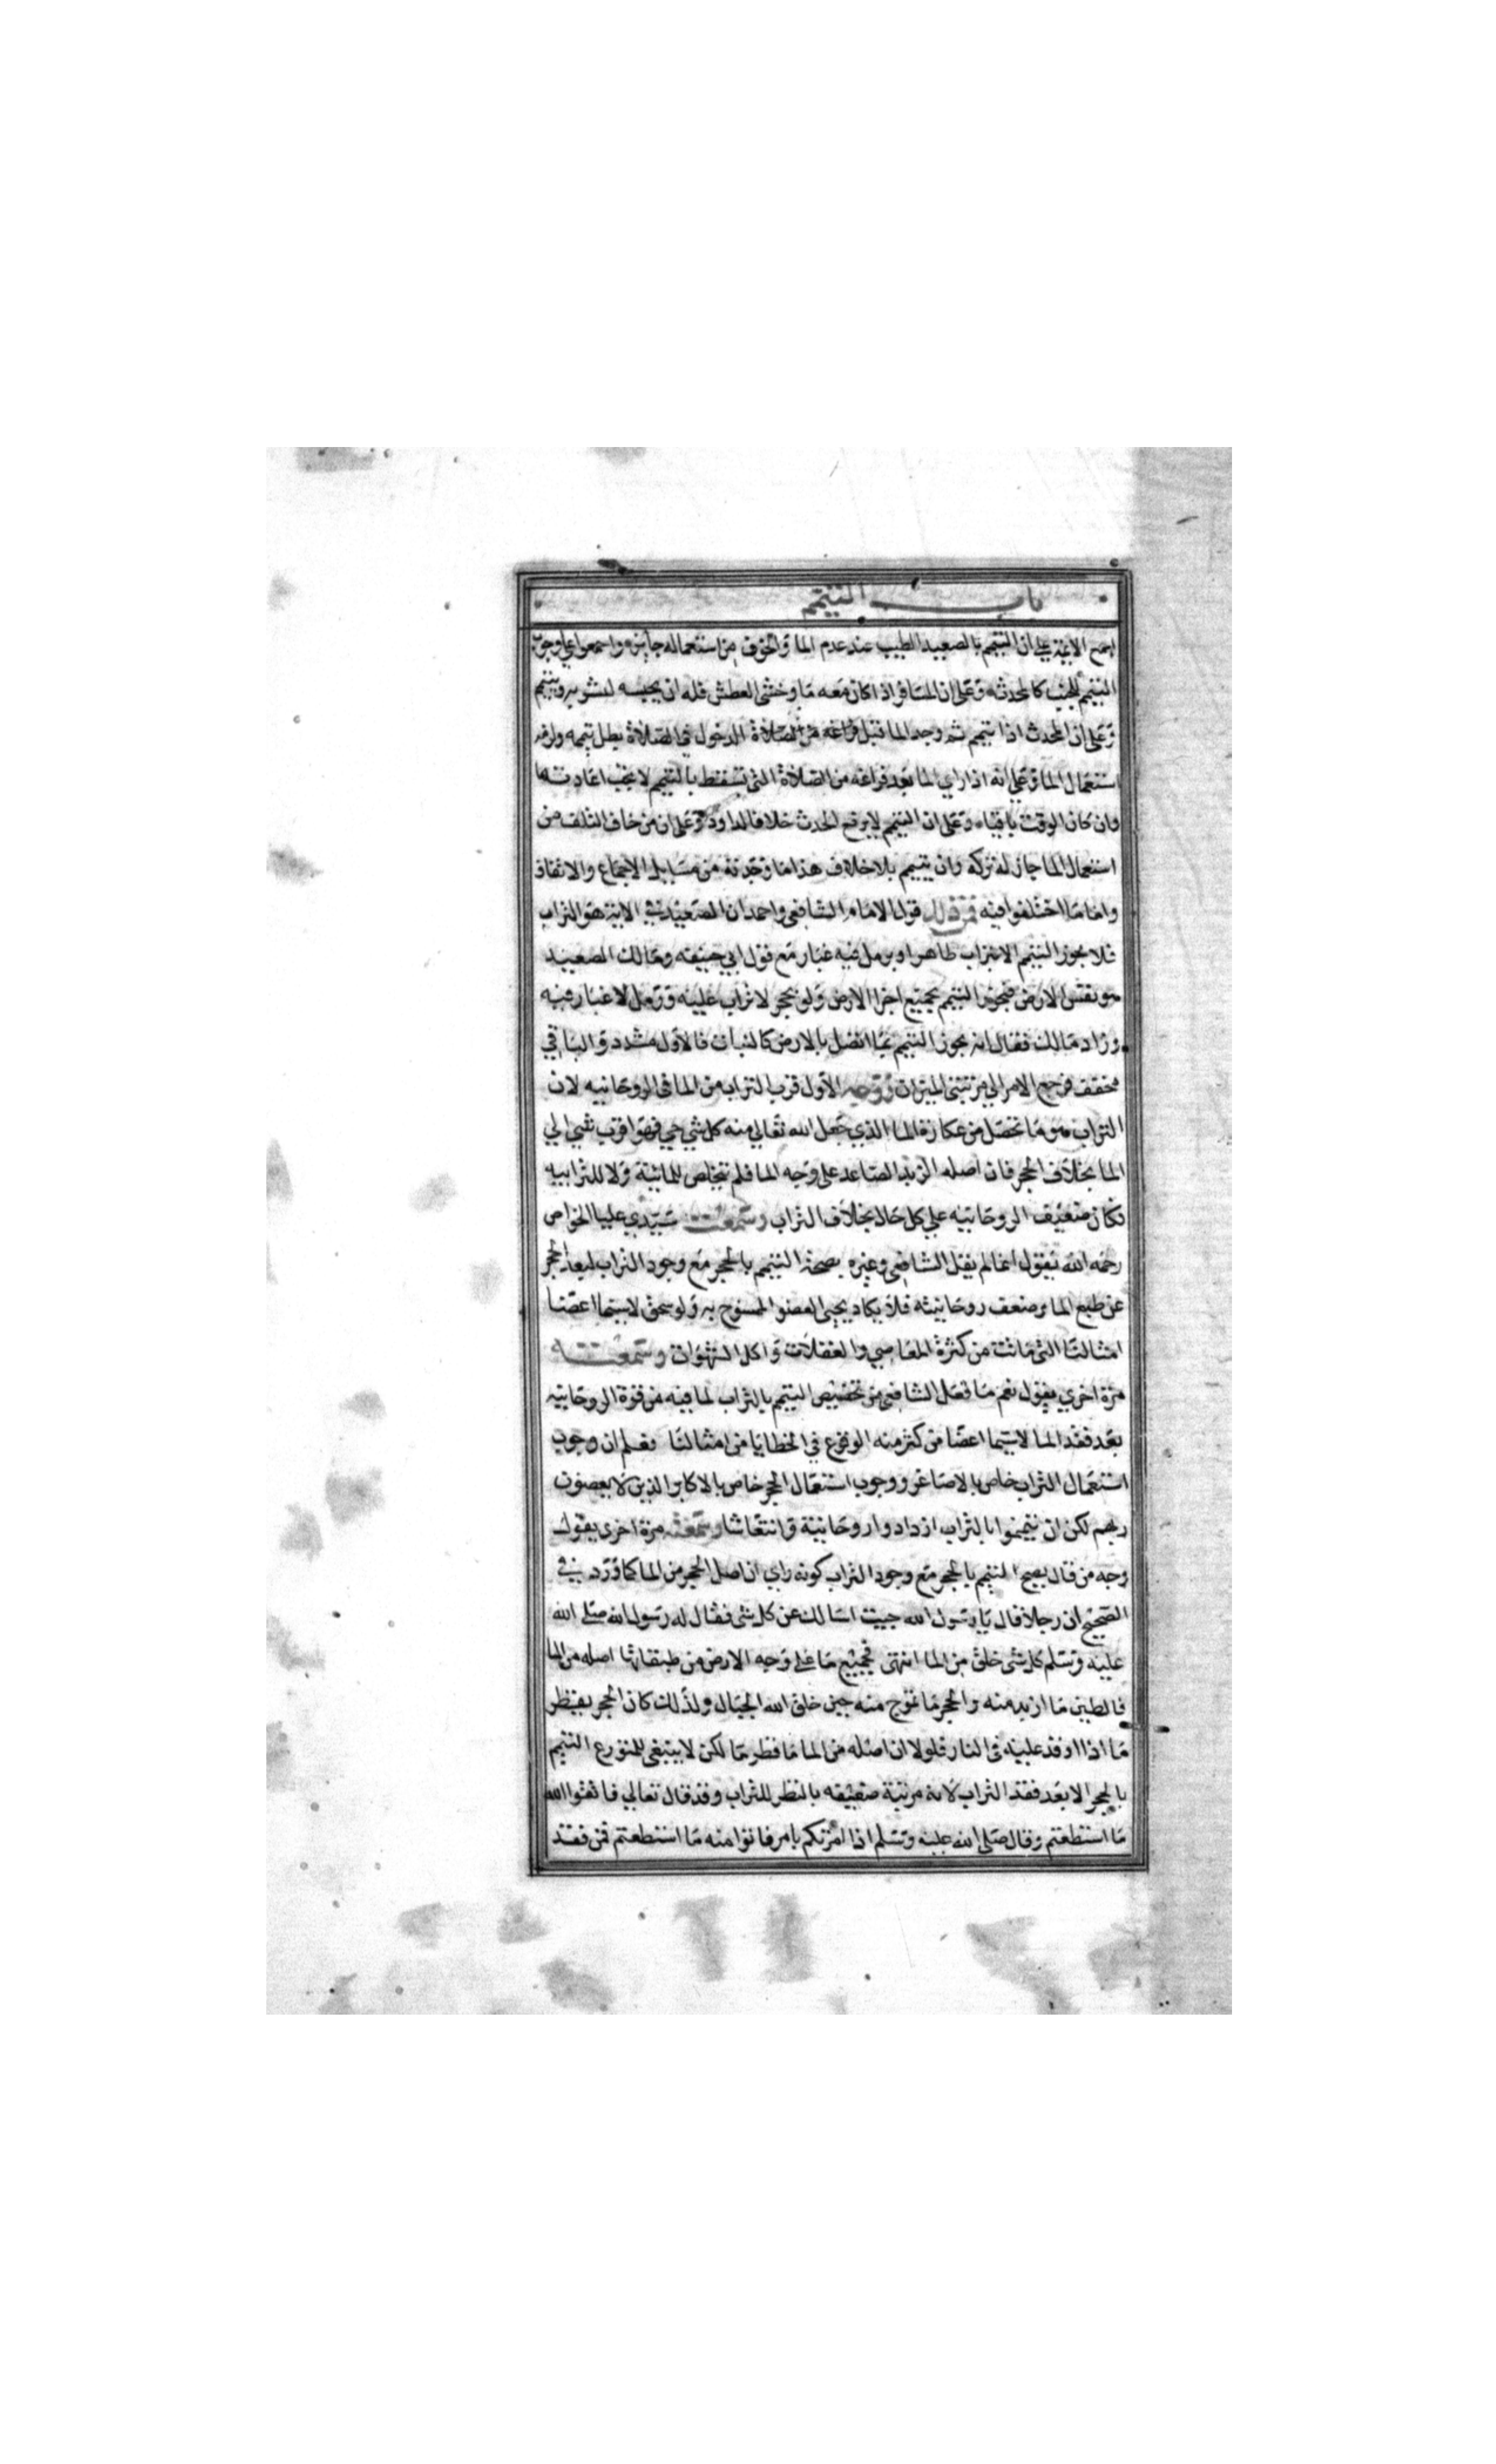 باب التيمم
اجمع الايمة علي ان التيمم بالصعيد الطيب عند عدم الما والخوف من استعماله جايز واجمعوا علي وجوب
التيمم للجنب كالمحدث وعلي ان المسافر اذا كان معه ما وخشي العطش فله ان يحبسه لشربه ويتيمم
وعلي ان المحدث اذا تيمم ثم وجد الما قبل فراغه من الصلاة الدخول في الصلاة بطل تيممه ولزمه
استعمال الما وعلي انه اذا راي الما بعد فراغه من الصلاة التي تسقط بالتيمم لا يجب اعادتها
وان كان الوقت باقيا وعلي ان التيمم لا يرفع الحدث خلافا لداود وعلي ان من خاف التلف من
استعمال الما جاز له تركه وان يتيمم بلا خلاف هذا ما وجدته من مسايل الاجماع والاتفاق
واما ما اختلفوا فيه فمن ذلك قول الامام الشافعي واحمد ان الصعيد في الاية هو التراب
فلا يجوز التيمم الا بتراب طاهر او برمل فيه غبار مع قول ابي حنيفه ومالك الصعيد
هو نفس الارض فيجوز التيمم بجميع اجزا الارض ولو بحجر لا تراب عليه ورمل لا غبار فيه
وزاد مالك فقال انه يجوز التيمم بما اتصل بالارض كالنبات فالاول مشدد والباقي
مخفف فرجع الامر الي مرتبتي الميزان ووجه الاول قرب التراب من الما في الروحانيه لان
التراب هو ما تحصل من عكارة الما الذي جعل الله تعالي منه كل شي حي فهو اقرب شي الي
الما بخلاف الحجر فان اصله الزبد الصاعد علي وجه الما فلم يتخلص للمائية ولا للترابيه
فكان ضعيف الروحانيه علي كل حال بخلاف التراب وسمعت سيدي عليا الخواص
رحمه الله يقول انما لم يقل الشافعي وغيره بصحة التيمم بالحجر مع وجود التراب لبعد الحجر
عن طبع الما وضعف روحانيته فلا يكاد يحيي العضو الممسوح به ولو سحق لا سيما اعضا
امثالنا التي ماتت من كثرة المعاصي والغفلات واكل الشهوات وسمعته
مرة اخري يقول نعم ما فعل الشافعي من تخصيص التيمم بالتراب لما فيه من قوة الروحانيه
بعد فقد الما لا سيما اعضا من كثر منه الوقوع في الخطايا من امثالنا فعلم ان وجوب
استعمال التراب خاص بالاصاغر ووجوب استعمال الحجر خاص بالاكابر الذين لا يعصون
ربهم لكن ان تيمموا بالتراب ازدادوا روحانية وانتعاشا وسمعته مرة اخري يقول
وجه من قال يصح التيمم بالحجر مع وجود التراب كونه راي ان اصل الحجر من الما كما ورد في
الصحيح ان رجلا قال يا رسول الله جيت اسالك عن كل شي فقال له رسول الله صلي الله
عليه وسلم كل شي خلق من الما انتهي فجميع ما علي وجه الارض من طبقاتها اصله من الما
فالطين ما ازبد منه والحجر ما تموج منه حين خلق الله الجبال ولذلك كان الحجر يقطر
ما اذا اوقد عليه في النار فلولا ان اصله من الما ما قطر ما لكن لا ينبغي للمتورع التيمم
بالحجر الا بعد فقد التراب لانه مرتبة ضعيفه بالنظر للتراب وقد قال تعالي فاتقوا الله
ما استطعتم وقال صلي الله عليه وسلم اذا امرتكم بامر فاتوا منه ما استطعتم فمن فقد